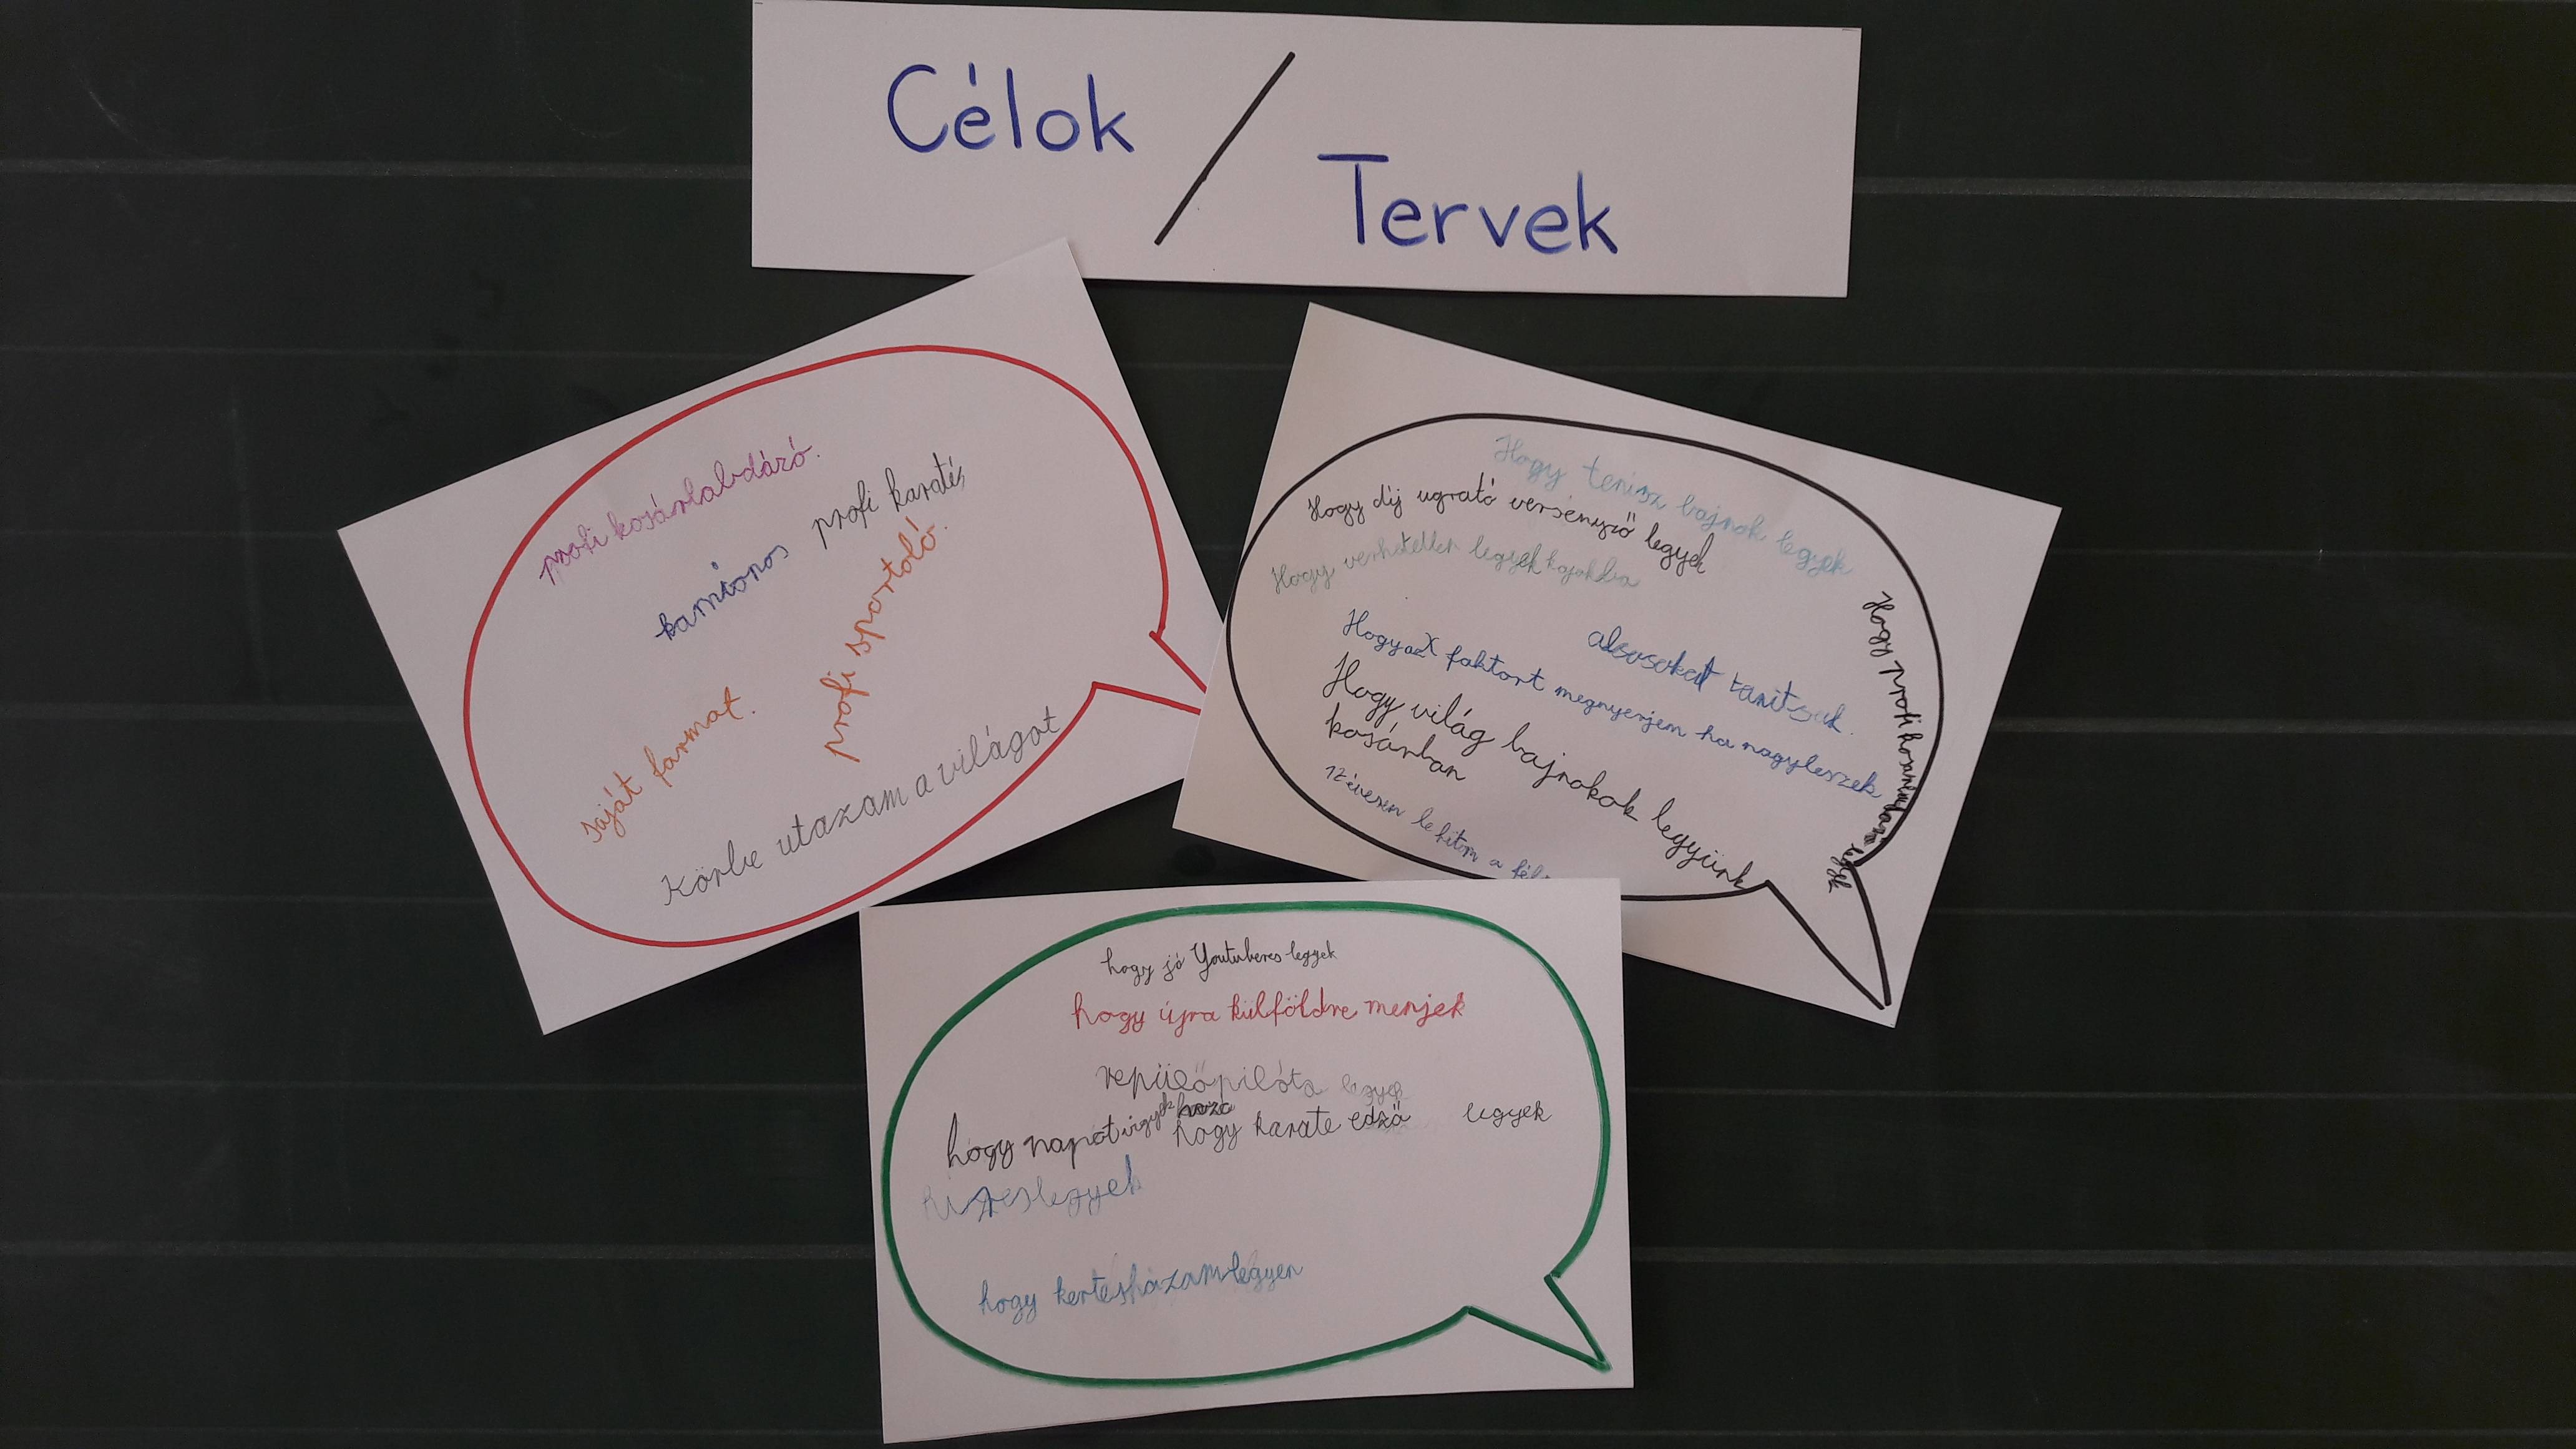 Célok / Tervek
profi kosárlabdázó.
kamionos
profi karatés
profi sportoló.
saját farmat.
Körbe utazam a világot
Hogy tenisz bajnok legyek
Hogy díj ugrató versenyző legyek
Hogy verhetetlen legyek
alsosokat tanitsak.
Hogy az X faktort megnyerjem ha nagy leszek
Hogy világ bajnokok legyünk
kosárban
12 évesen le fitom a
Hogy profi legyek
hogy jó Youtuberes legyek
hogy újra külföldre menjek
repülőpilóta legyek
hogy napot vigyek haza
hogy karate edző legyek
híres legyek
hogy kertes házam legyen